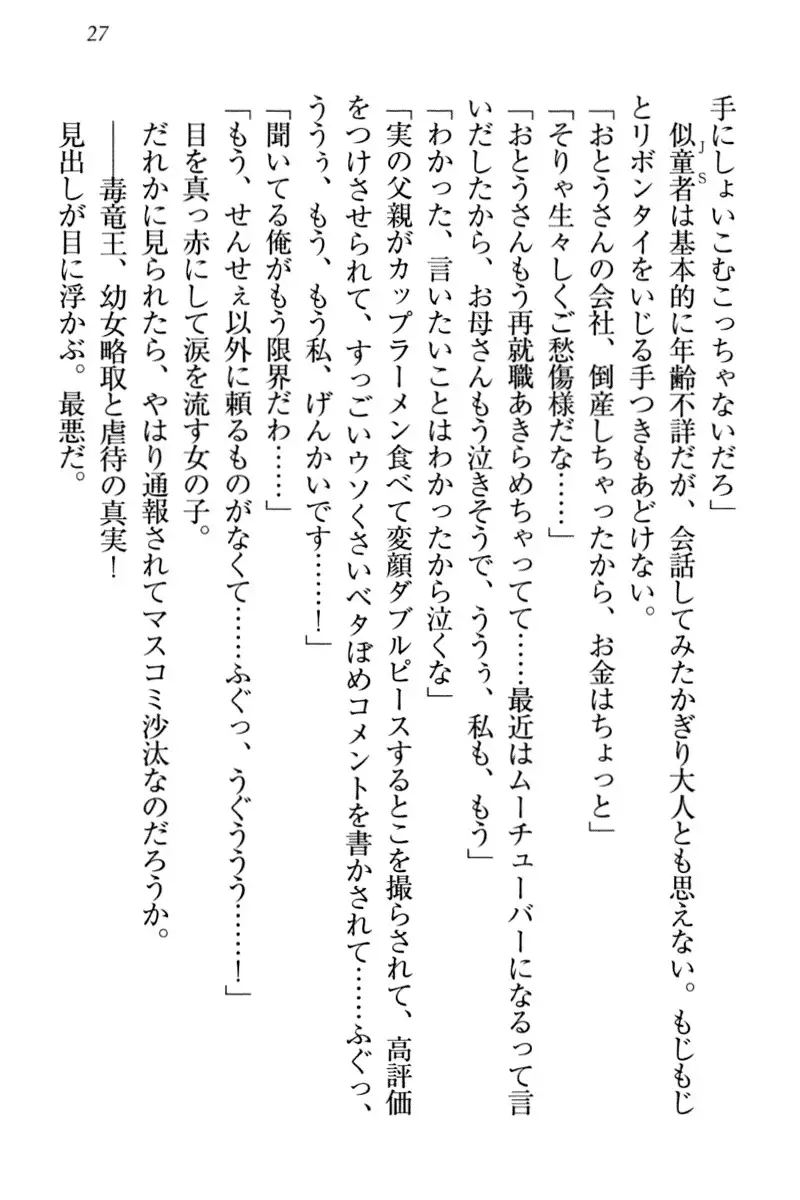 27
手にしょいこむこっちゃないだろ」
似童者は基本的に年齢不詳だが、会話してみたかぎり大人とも思えない。もじもじ
JS
とリボンタイをいじる手つきもあどけない。
「おとうさんの会社、倒産しちゃったから、お金はちょっと」
「そりゃ生々しくご愁傷様だな……」
「おとうさんもう再就職あきらめちゃってて……最近はムーチューバーになるって言
いだしたから、お母さんもう泣きそうで、ううぅ、私も、もう」
「わかった、言いたいことはわかったから泣くな」
「実の父親がカップラーメン食べて変顔ダブルピースするとこを撮らされて、高評価
をつけさせられて、すっごいウソくさいベタぼめコメントを書かされて……ふぐっ、
ううぅ、もう、もう私、げんかいです……！」
「聞いてる俺がもう限界だわ……」
「もう、せんせぇ以外に頼るものがなくて……ふぐっ、うぐううう……！」
目を真っ赤にして涙を流す女の子。
だれかに見られたら、やはり通報されてマスコミ沙汰なのだろうか。
――毒竜王、幼女略取と虐待の真実！
見出しが目に浮かぶ。最悪だ。